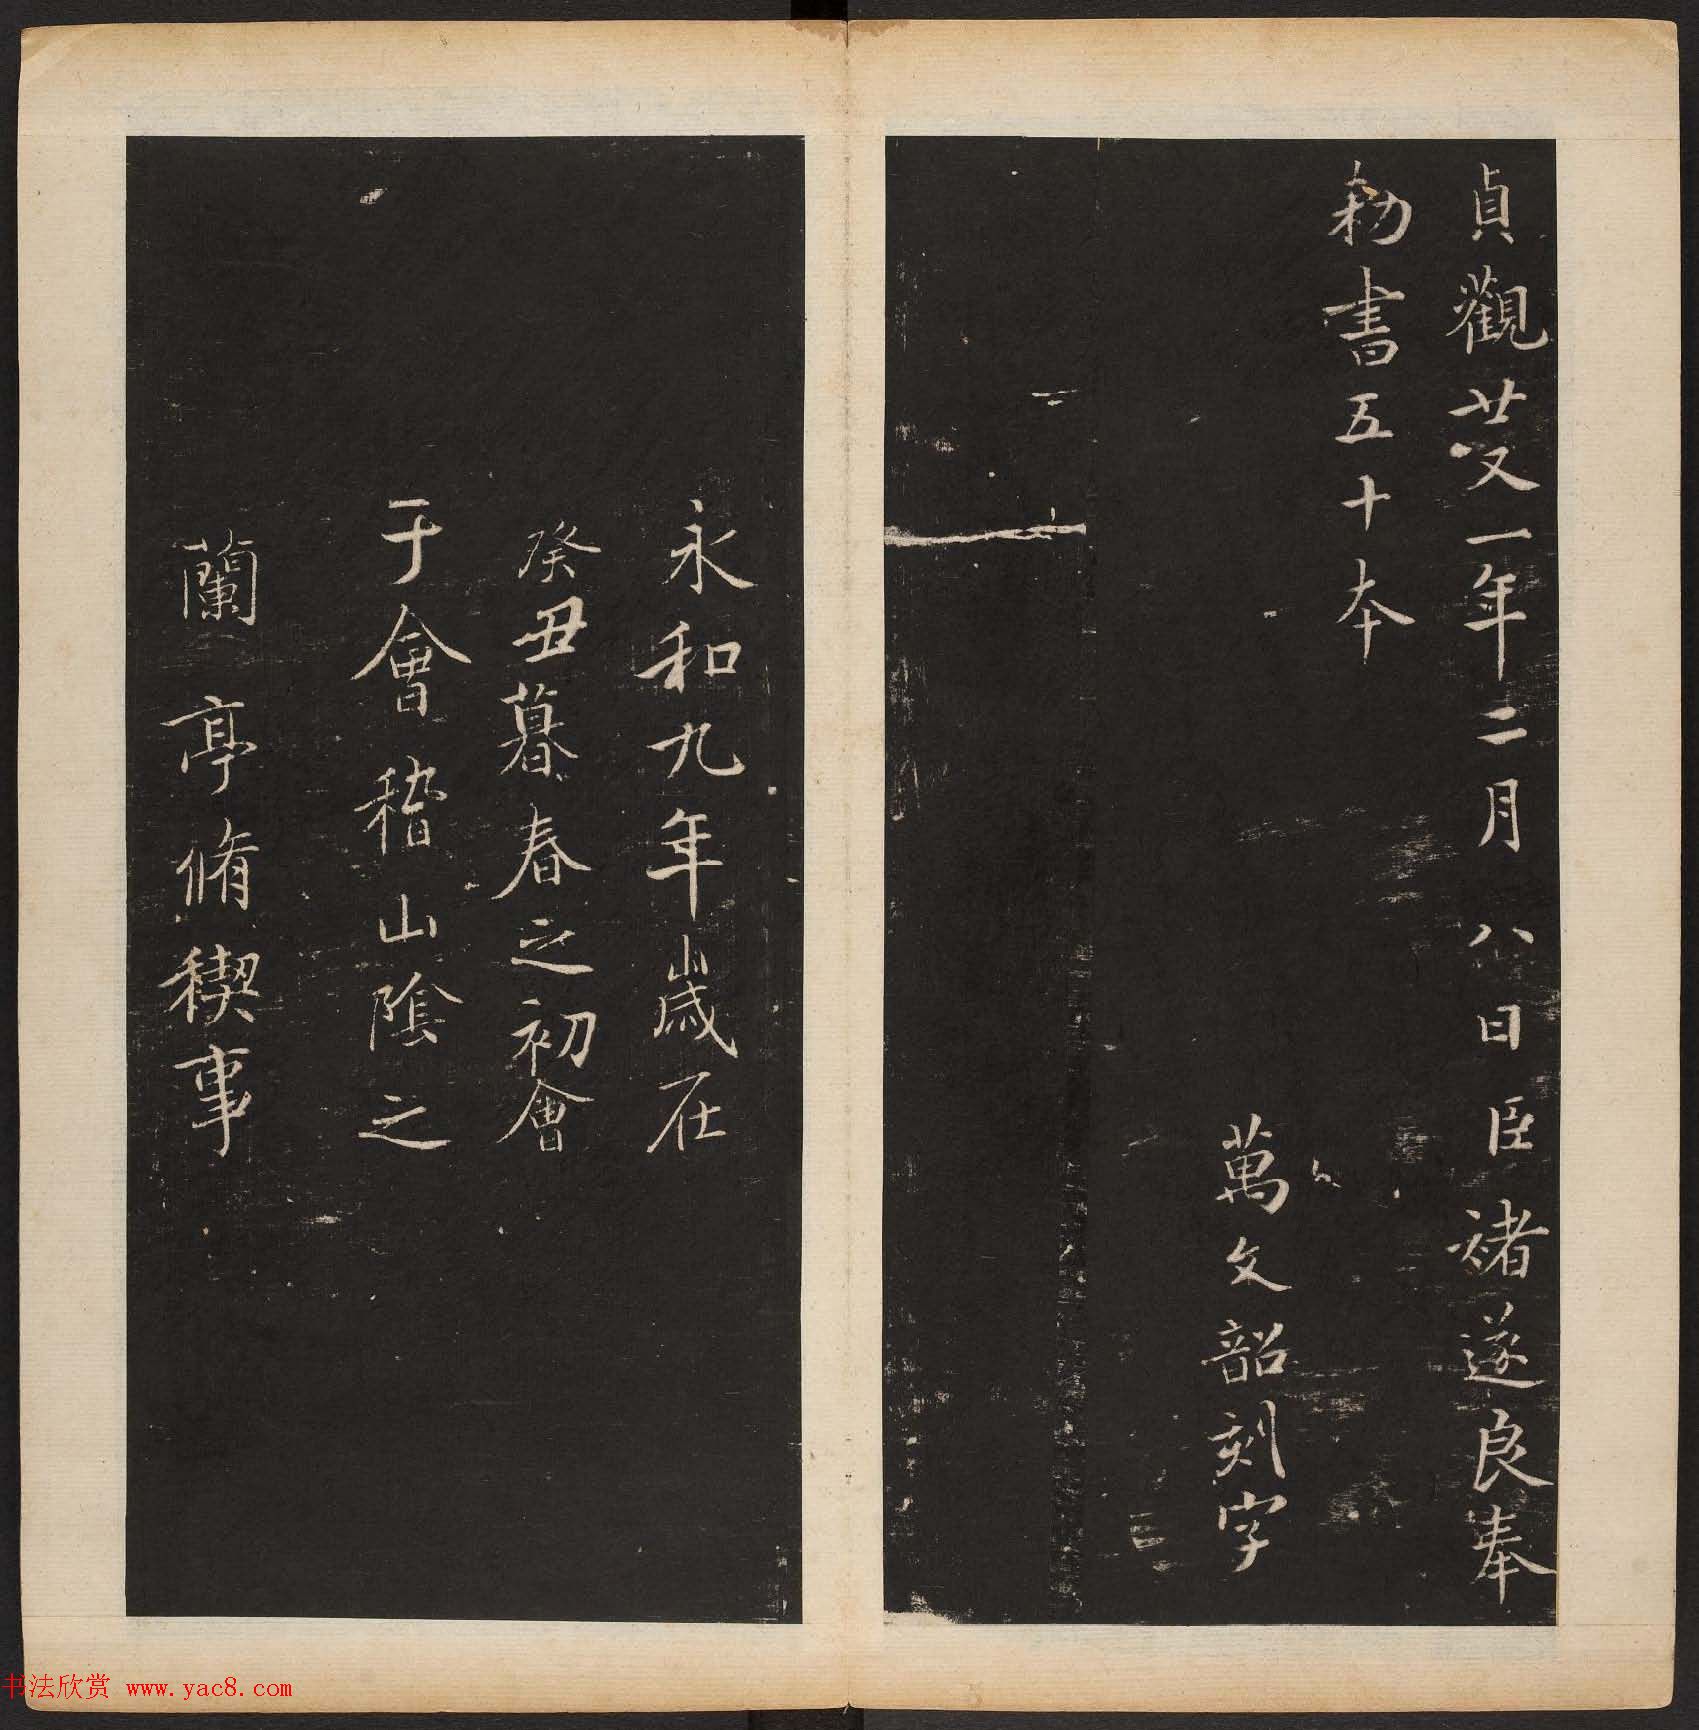 貞觀廿又一年二月八日臣褚遂良奉
勑書五十本
萬文韶刻字
永和九年歲在
癸丑暮春之初會
于會稽山陰之
蘭亭脩稧事
书法欣赏 www.yac8.com